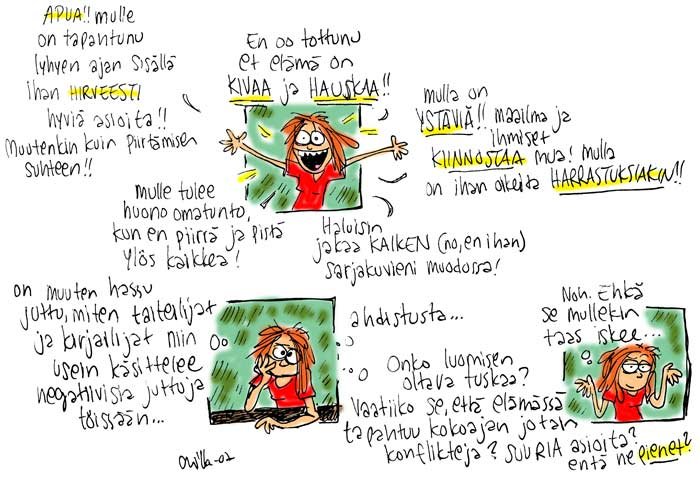 APUA!! mulle
on tapahtunu
lyhyen ajan sisällä
ihan HIRVEESTI
hyviä asioita!!
Muutenkin kuin piirtämisen
suhteen!!
En oo tottunu
et elämä on
KIVAA ja HAUSKAA!!
mulla on
YSTÄVIÄ!! maailma ja
ihmiset
KIINNOSTAA mua! mulla
on ihan oikeita HARRASTUKSIAKIN!!
Mulle tulee
huono omatunto,
kun en piirrä ja pistä
ylös kaikkea!
Haluisin
jakaa KAIKEN (no, en ihan)
sarjakuvieni muodossa!
on muuten hassu
juttu, miten taiteilijat
ja kirjailijat niin
usein käsittelee
negatiivisia juttuja
töissään...
ahdistusta...
Onko luomisen
oltava tuskaa?
Vaatiiko se, että elämässä
tapahtuu kokoajan jotain
konflikteja? SUURIA asioita?
entä ne pienet?
Noh. Ehkä
se mullekin
taas iskee...